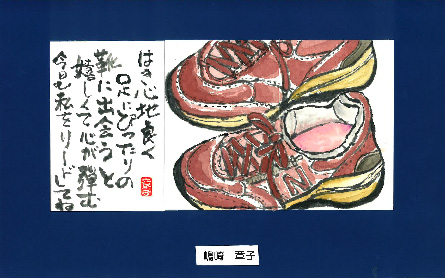 はき心地良く
足にぴったりの
靴に出会うと
嬉しくて心が弾む
今日も私をリードしてね
N
嶋崎 章子